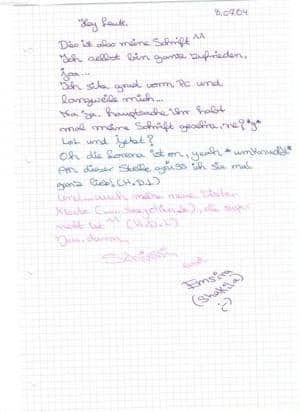 8.07.04
Hey Leute.
Das ist also meine Schrift ^^
Ich selbst bin ganz zufrieden,
jaa...
Ich sitz grad vorm PC und
langweile mich...
Na ja. hauptsache ihr habt
mal meine Schrift gesehn, ne? *g*
Lol und jetzt?
Oh die ist on, yeah
An dieser Stelle grüss ich sie mal
ganz lieb (H.D.L)
Und auch meine neue
die super
nett ist ^^ (H.D.L)
(Shakila)
;-)